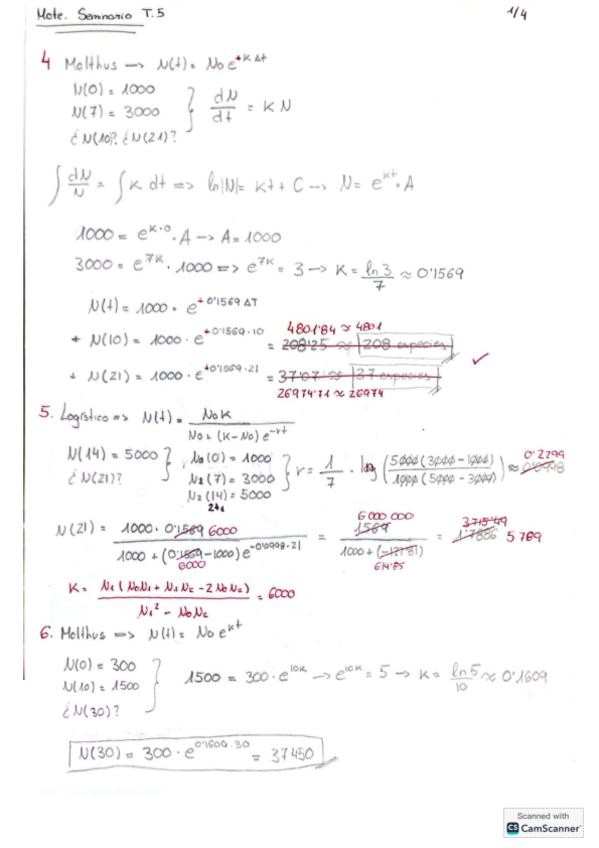 Mate. Seminario T.5
1/4
4 Malthus → N(t) = N₀ e^{+KΔt}
N(0) = 1000
N(7) = 3000
¿N(10)? ¿N(21)?
dN/dt = KN
∫ dN/N = ∫ K dt => ln|N| = Kt + C → N = e^{Kt} · A
1000 = e^{K·0} · A → A = 1000
3000 = e^{7K} · 1000 => e^{7K} = 3 → K = ln 3/7 ≈ 0'1569
N(t) = 1000 · e^{+0'1569 ΔT}
4801'84 ≈ 4801
+ N(10) = 1000 · e^{+0'1569·10} = 208'25 ≈ 208 especies ✓
+ N(21) = 1000 · e^{+0'1569·21} = 37'07 ≈ 37 especies
26974'71 ≈ 26974
5. Logístico => N(t) = N₀K / N₀+(K-N₀)e^{-rt}
N(14) = 5000
¿N(21)?
N₀(0) = 1000
N₁(7) = 3000
N₂(14) = 5000
r = 1/7 · log (5000(3000-1000) / 1000(5000-3000)) ≈ 0'0998 0'2299
N(21) = 1000 · 0'1569 6000 / 1000 + (0'1569 - 1000) e^{-0'0998·21} = 1569 / 1000 + (-121'81) = 1'7886 5 789
6000
6000 000
614'85
3715'49
K = N₁(N₀N₁ + N₁N₂ - 2N₀N₂) / N₁² - N₀N₂ = 6000
6. Malthus => N(t) = N₀ e^{Kt}
N(0) = 300
N(10) = 1500
¿N(30)?
1500 = 300 · e^{10K} → e^{10K} = 5 → K = ln 5/10 ≈ 0'1609
N(30) = 300 · e^{0'1609·30} = 37450
Scanned with
CS CamScanner